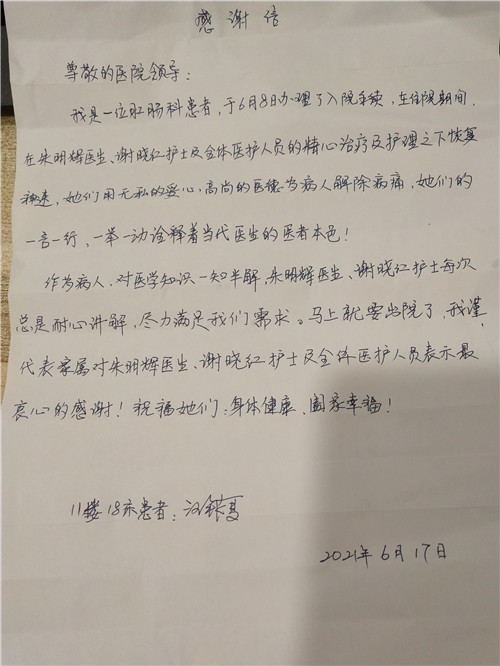 感谢信
尊敬的医院领导：
我是一位肛肠科患者，于6月8日办理了入院手续，在住院期间，
在朱明辉医生、谢晓红护士及全体医护人员的精心治疗及护理之下恢复
神速，她们用无私的爱心，高尚的医德为病人解除病痛，她们的
一言一行，一举一动诠释着当代医生的医者本色！
作为病人，对医学知识一知半解，朱明辉医生、谢晓红护士每次
总是耐心讲解，尽力满足我们需求。马上就要出院了，我谨
代表家属对朱明辉医生、谢晓红护士及全体医护人员表示最
衷心的感谢！祝福她们：身体健康、阖家幸福！
11楼18床患者：汪
2021年6月17日